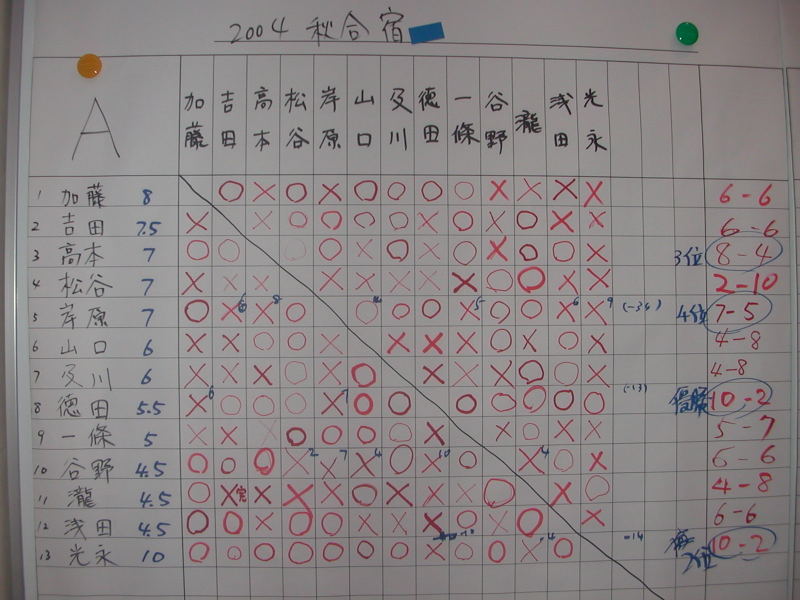 2004 秋合宿
A
加藤 吉田 高本 松谷 岸原 山口 及川 徳田 一條 谷野 瀧 浅田 光永
1 加藤 8 ○ × ○ × ○ ○ ○ ○ × × × × 6-6
2 吉田 7.5 × × ○ ○ ○ ○ × ○ × ○ × × 6-6
3 高本 7 ○ ○ ○ ○ × ○ × ○ × ○ ○ × 3位 8-4
4 松谷 7 × × × × × × × × ○ ○ × × 2-10
5 岸原 7 ○ × × 8 ○ ○ ○ ○ × 5 ○ ○ × 6 × 9 4位 7-5
6 山口 6 × × ○ ○ × × × × ○ × ○ × 4-8
7 及川 6 × × × ○ × ○ × × × ○ ○ × 4-8
8 徳田 5.5 × 6 ○ ○ ○ × 7 ○ ○ ○ ○ ○ ○ ○ (-13) 10-2
9 一條 5 × × × ○ ○ ○ ○ × × ○ × × 5-7
10 谷野 4.5 ○ ○ ○ × 2 × 7 × 4 ○ × 10 ○ × 4 ○ × 6-6
11 瀧 4.5 ○ × × × × ○ × × × ○ × ○ 4-8
12 浅田 4.5 ○ ○ × ○ ○ × × × ○ × ○ × 6-6
13 光永 10 ○ ○ ○ ○ ○ ○ ○ × ○ ○ × 4 ○ -14 2位 10-2